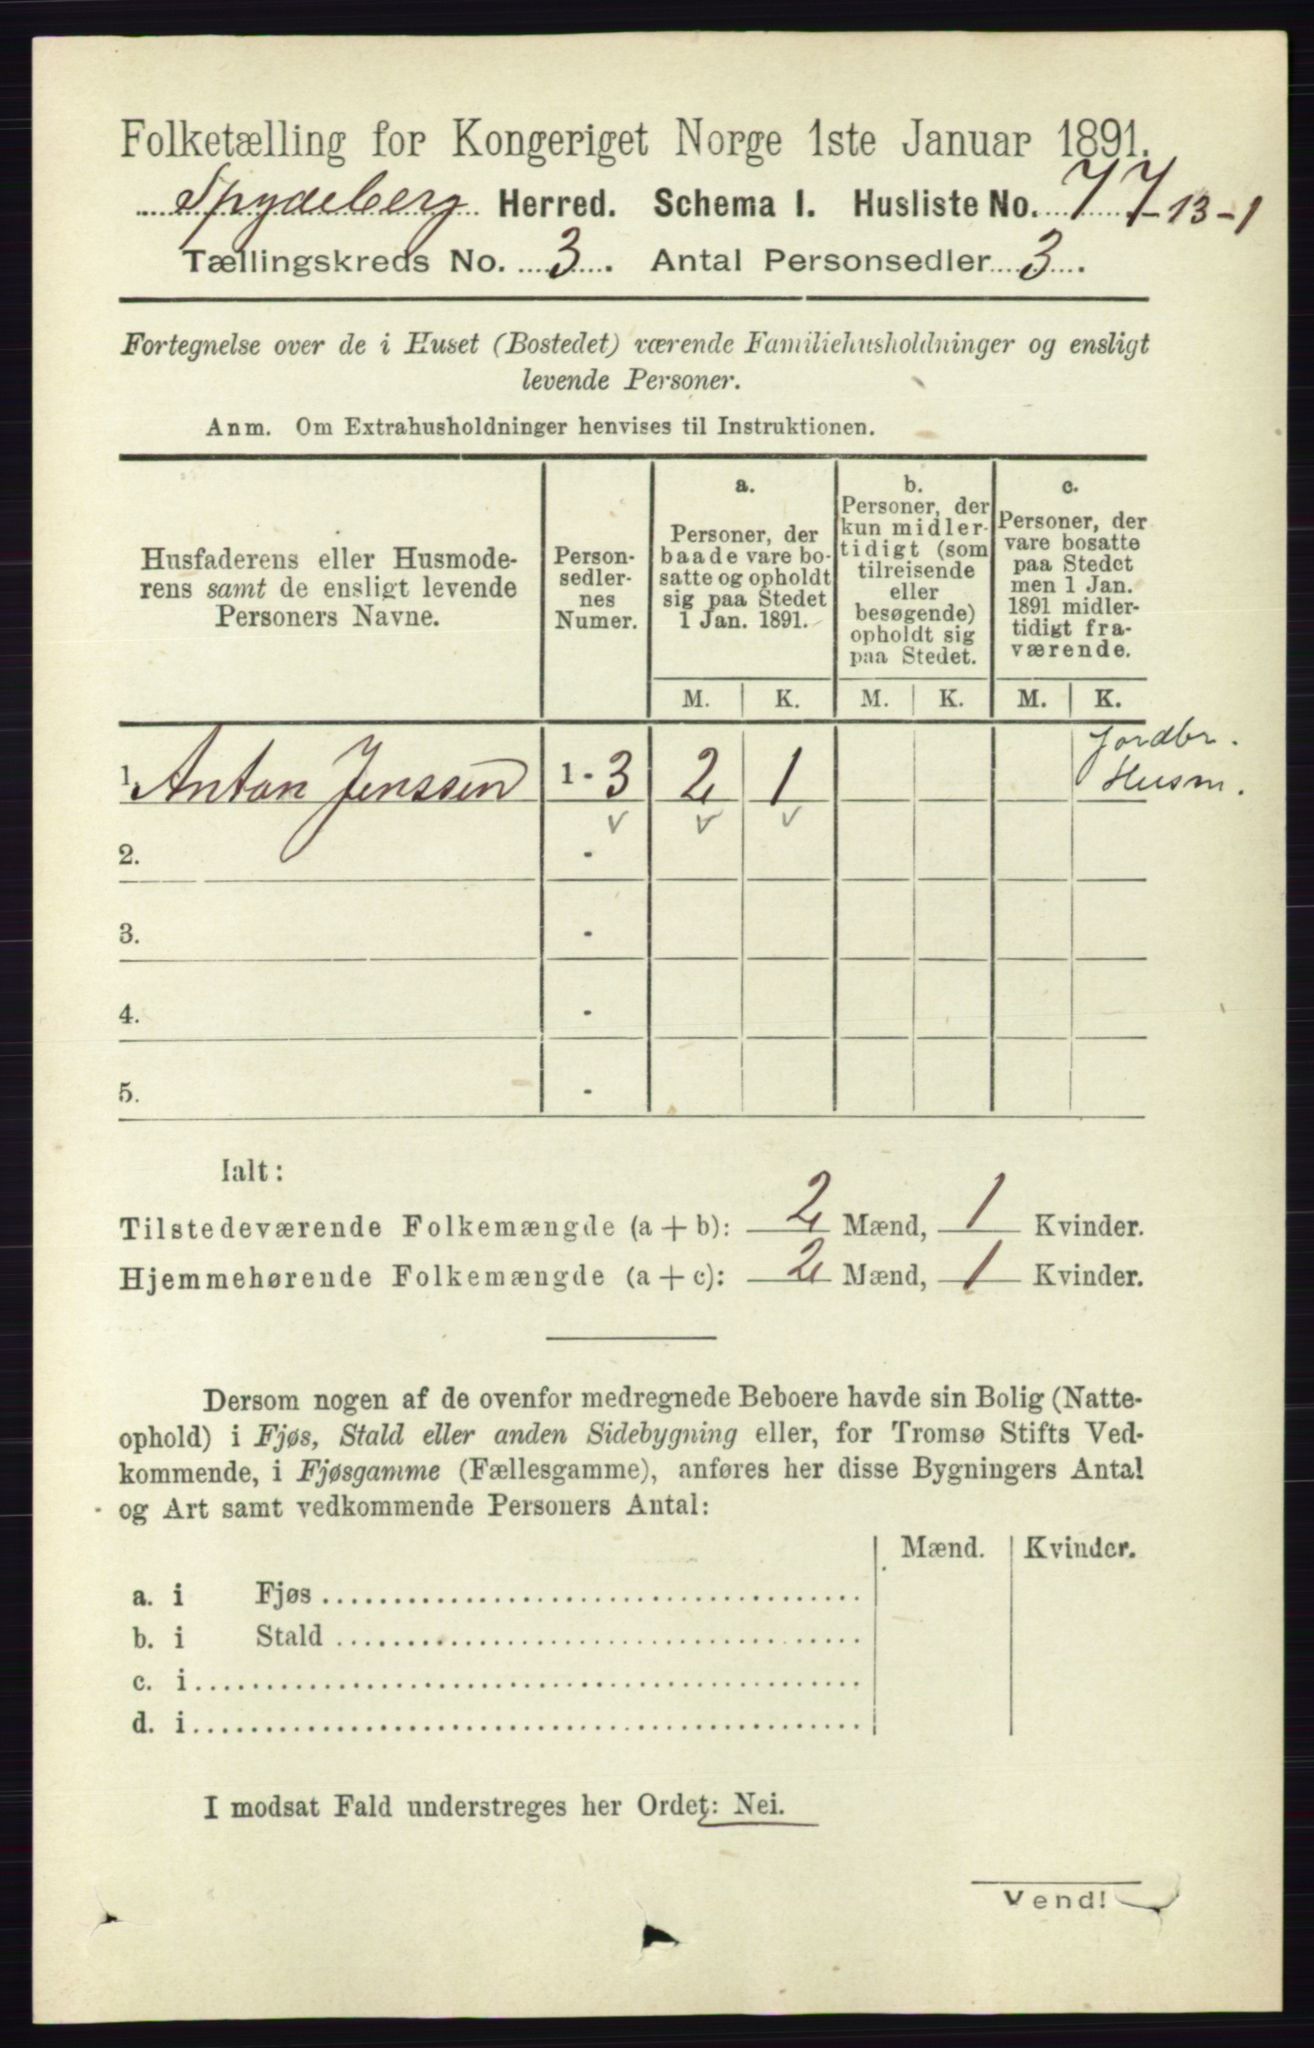 Folketælling for Kongeriget Norge 1ste Januar 1891.
Spydeberg Herred. Schema I. Husliste No. 77-13-1
Tællingskreds No. 3. Antal Personsedler 3.
Fortegnelse over de i Huset (Bostedet) værende Familiehusholdninger og ensligt
levende Personer.
Anm. Om Extrahusholdninger henvises til Instruktionen.
Husfaderens eller Husmode-
rens samt de ensligt levende
Personers Navne.
Person-
sedler-
nes
Numer.
a.
Personer, der
baade vare bo-
satte og opholdt
sig paa Stedet
1 Jan. 1891.
b.
Personer, der
kun midler-
tidigt (som
tilreisende
eller
besøgende)
opholdt sig
paa Stedet.
c.
Personer, der
vare bosatte
paa Stedet
men 1 Jan.
1891 midler-
tidigt fra-
værende.
M. K. M. K. M. K.
Jordbr.
Husm.
1. Anton Jenssen 1 - 3 2 1
2. -
3. -
4. -
5. -
Ialt:
Tilstedeværende Folkemængde (a + b): 2 Mænd, 1 Kvinder.
Hjemmehørende Folkemængde (a + c): 2 Mænd, 1 Kvinder.
Dersom nogen af de ovenfor medregnede Beboere havde sin Bolig (Natte-
ophold) i Fjøs, Stald eller anden Sidebygning eller, for Tromsø Stifts Ved-
kommende, i Fjøsgamme (Fællesgamme), anføres her disse Bygningers Antal
og Art samt vedkommende Personers Antal:
Mænd. Kvinder.
a. i Fjøs
b. i Stald
c. i
d. i
I modsat Fald understreges her Ordet: Nei.
Vend!